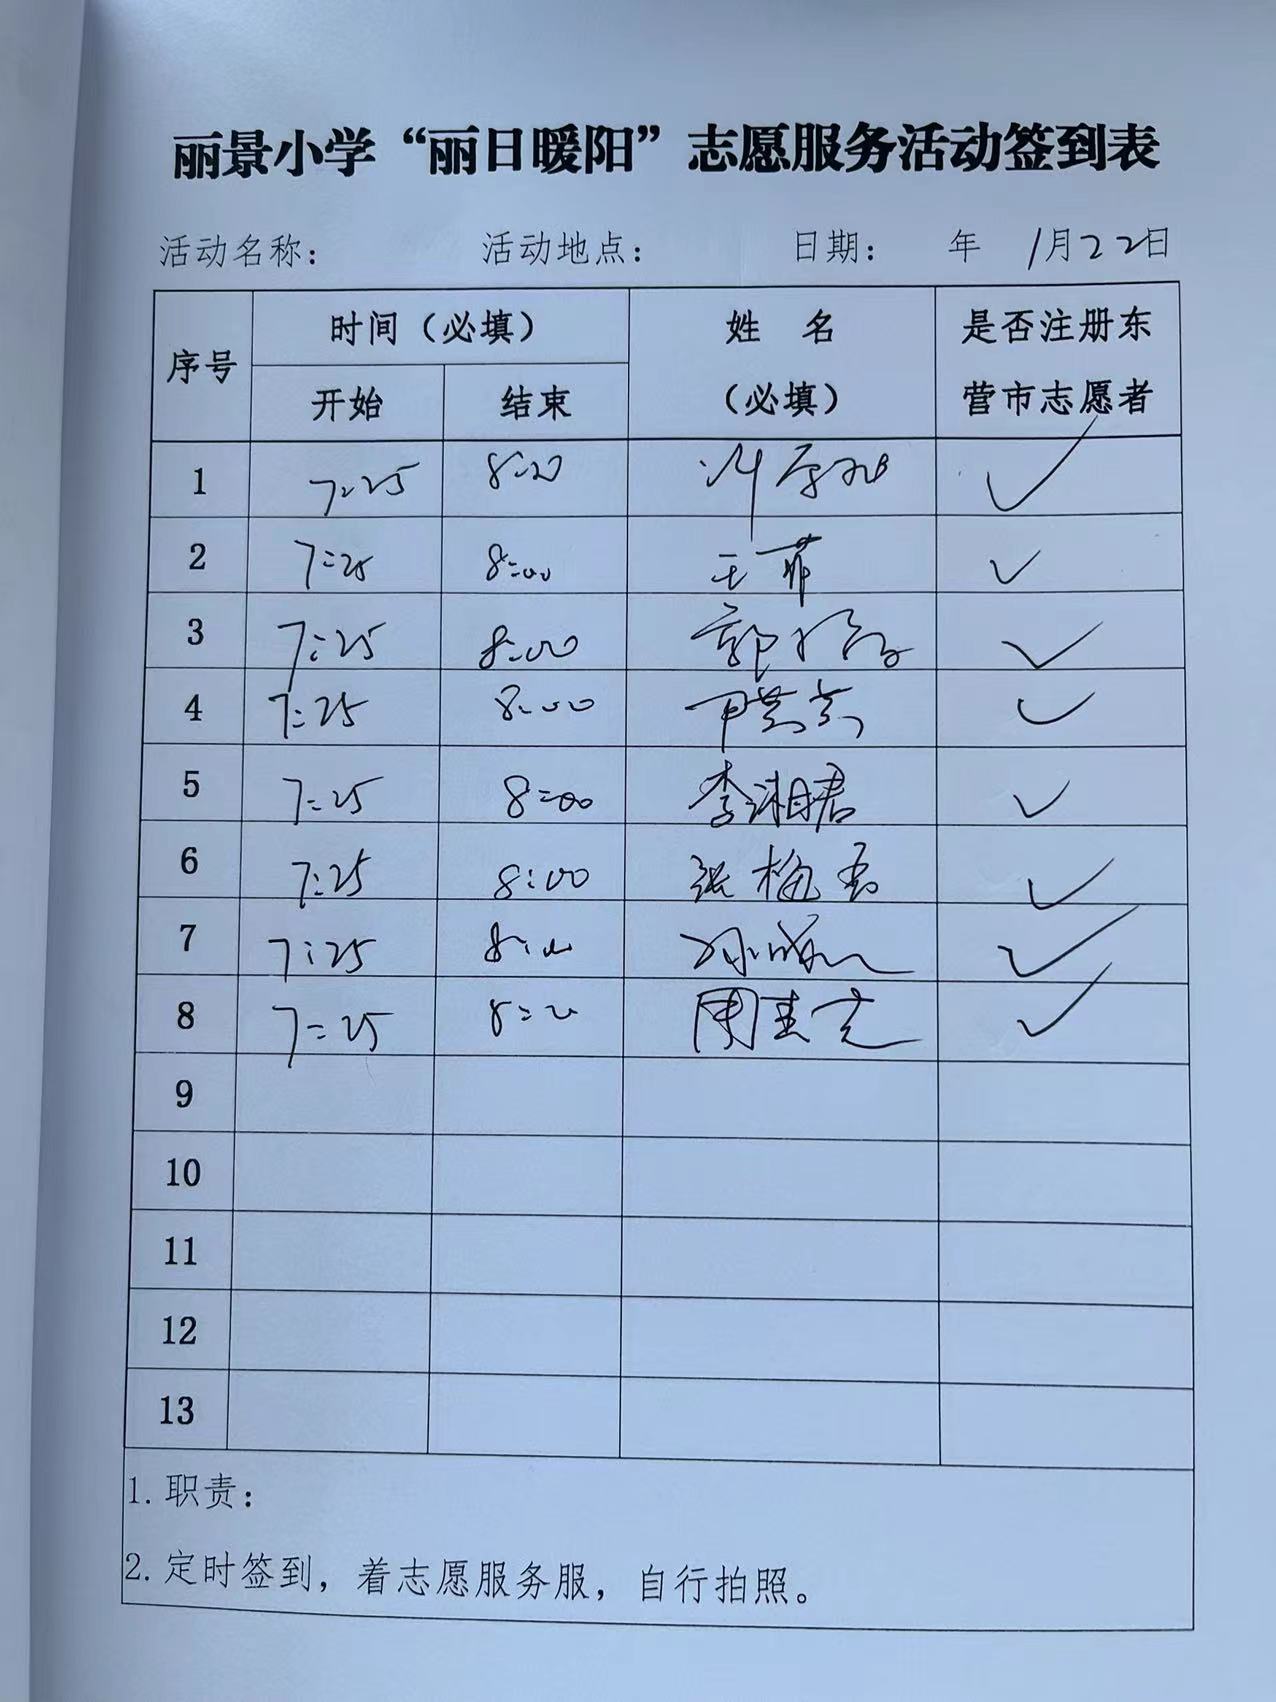 丽景小学“丽日暖阳”志愿服务活动签到表
活动名称： 活动地点： 日期： 年 1月22日
序号 时间（必填） 姓 名（必填） 是否注册东营市志愿者
开始 结束
1 7:25 8:00 ✓
2 7:25 8:00 王菲 ✓
3 7:25 8:00 郭 ✓
4 7:25 8:00 尹 ✓
5 7:25 8:00 李湘君 ✓
6 7:25 8:00 张梅 ✓
7 7:25 8:00 孙 ✓
8 7:25 8:00 周 ✓
9
10
11
12
13
1. 职责：
2. 定时签到，着志愿服务服，自行拍照。